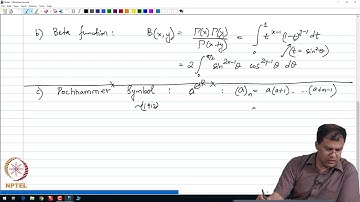 b) Beta function : B(x,y) = Γ(x) Γ(y) / Γ(x+y) = ∫₀¹ t^(x-1) (1-t)^(y-1) dt
(t = sin²θ)
= 2 ∫₀^(π/2) sin^(2x-1)θ cos^(2y-1)θ dθ
c) Pochhammer Symbol : : (a)ₙ = a(a+1) ... (a+n-1)
=
NPTEL